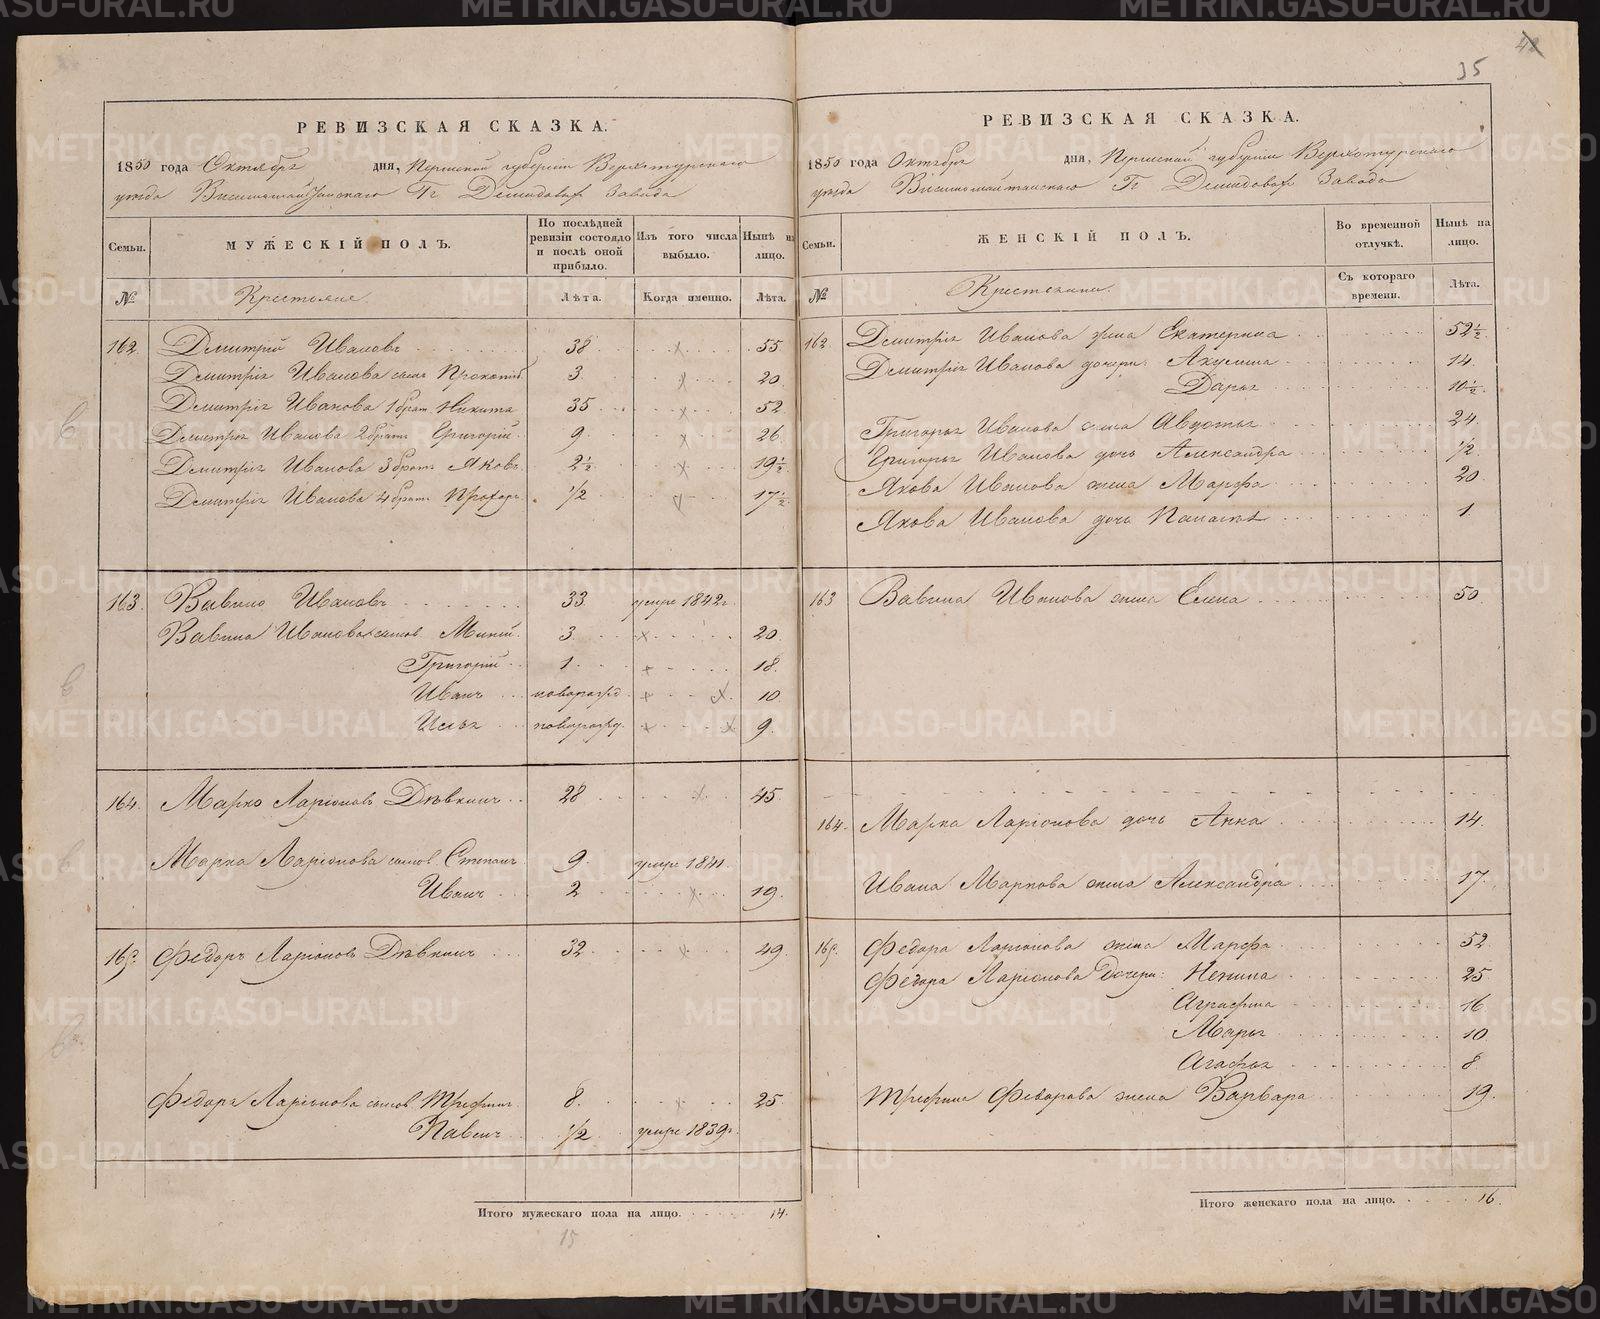 35
РЕВИЗСКАЯ СКАЗКА.
1850 года Октября дня, Пермской губернiи Верхотурскаго
уезда Висимошайтанскаго Гг Демидовых завода
Семьи. МУЖЕСКIЙ ПОЛЪ. По послѣдней ревизiи состояло и послѣ оной прибыло. Изъ того числа выбыло. Нынѣ на лицо.
№ Крестьяне. Лѣта. Когда именно. Лѣта.
162. Дмитрий Ивановъ 38 55
Дмитрiя Иванова сынъ Прокопiй 3. 20
Дмитрiя Иванова 1 братъ Никита 35 52
Дмитрiя Иванова 2 братъ Григорiй 9. 26
Дмитрiя Иванова 3 братъ Яковъ 2½ 19½
Дмитрiя Иванова 4 братъ Прохоръ ½ 17½
163. Вавило Ивановъ 33 умре 1842 г.
Вавила Иванова сынов. 3 20
Григорiй 1 18
Иванъ новорожд. 10
Илья новорожд. 9
164. Марко Ларiоновъ Дѣвкинъ 28 45
Марка Ларiонова сынов. Степанъ 9. умре 1841.
Иванъ 2 19
165. Федоръ Ларiоновъ Дѣвкинъ 32 49
Федора Ларiонова сынов. Трифонъ 8. 25
Павелъ ½ умре 1839 г.
Итого мужескаго пола на лицо. 14.
15
РЕВИЗСКАЯ СКАЗКА.
1850 года Октября дня, Пермской губернiи Верхотурскаго
уезда Висимошайтанскаго Гг Демидовых завода
Семьи. ЖЕНСКIЙ ПОЛЪ. Во временной отлучкѣ. Нынѣ на лицо.
№ Крестьяне. Съ котораго времени. Лѣта.
162 Дмитрiя Иванова жена Екатерина 52½
Дмитрiя Иванова дочери: Акулина 14.
Дарья 10½
Григорья Иванова жена Августа 24.
Григорья Иванова дочь Александра ½
Якова Иванова жена Марфа 20
Якова Иванова дочь 1.
163 Вавила Иванова жена Елена 50.
164. Марка Ларiонова дочь Анна 14.
Ивана Маркова жена Александра 17
165. Федора Ларiонова жена Марфа 52
Федора Ларiонова дочери: Ненила 25
Аграфина 16
Марья 10
Агафья 8
Трифона Федорова жена Варвара 19.
Итого женскаго пола на лицо. 16.
METRIKI.GASO-URAL.RU